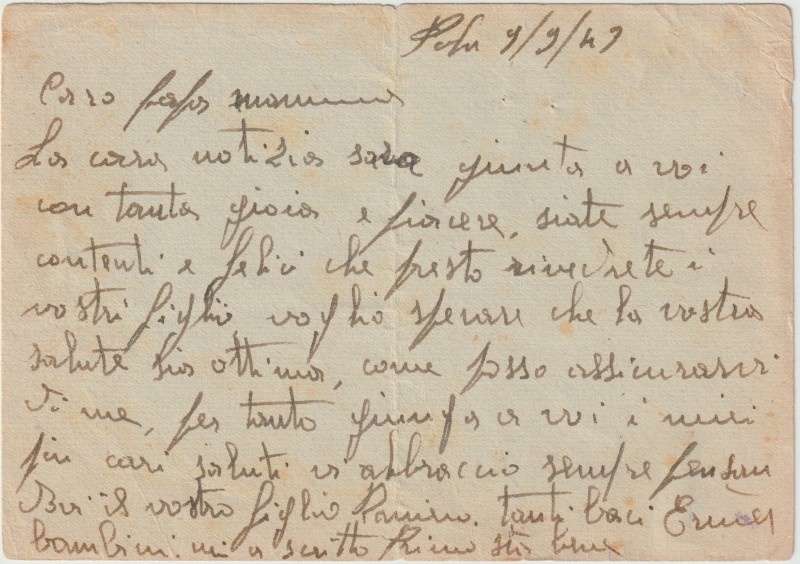 Pola 9/9/43
Caro papa mamma
La cara notizia sara giunta a voi
con tanta gioia e piacere, siate sempre
contenti e felici che presto rivedrete i
vostri figlii, voglio sperare che la vostra
salute sia ottima, come posso assicurarvi
di me, per tanto giunga a voi i miei
piu cari saluti vi abbraccio sempre pensan
dovi il vostro figlio tanti baci
bambini. mi a scritto Primo sta bene